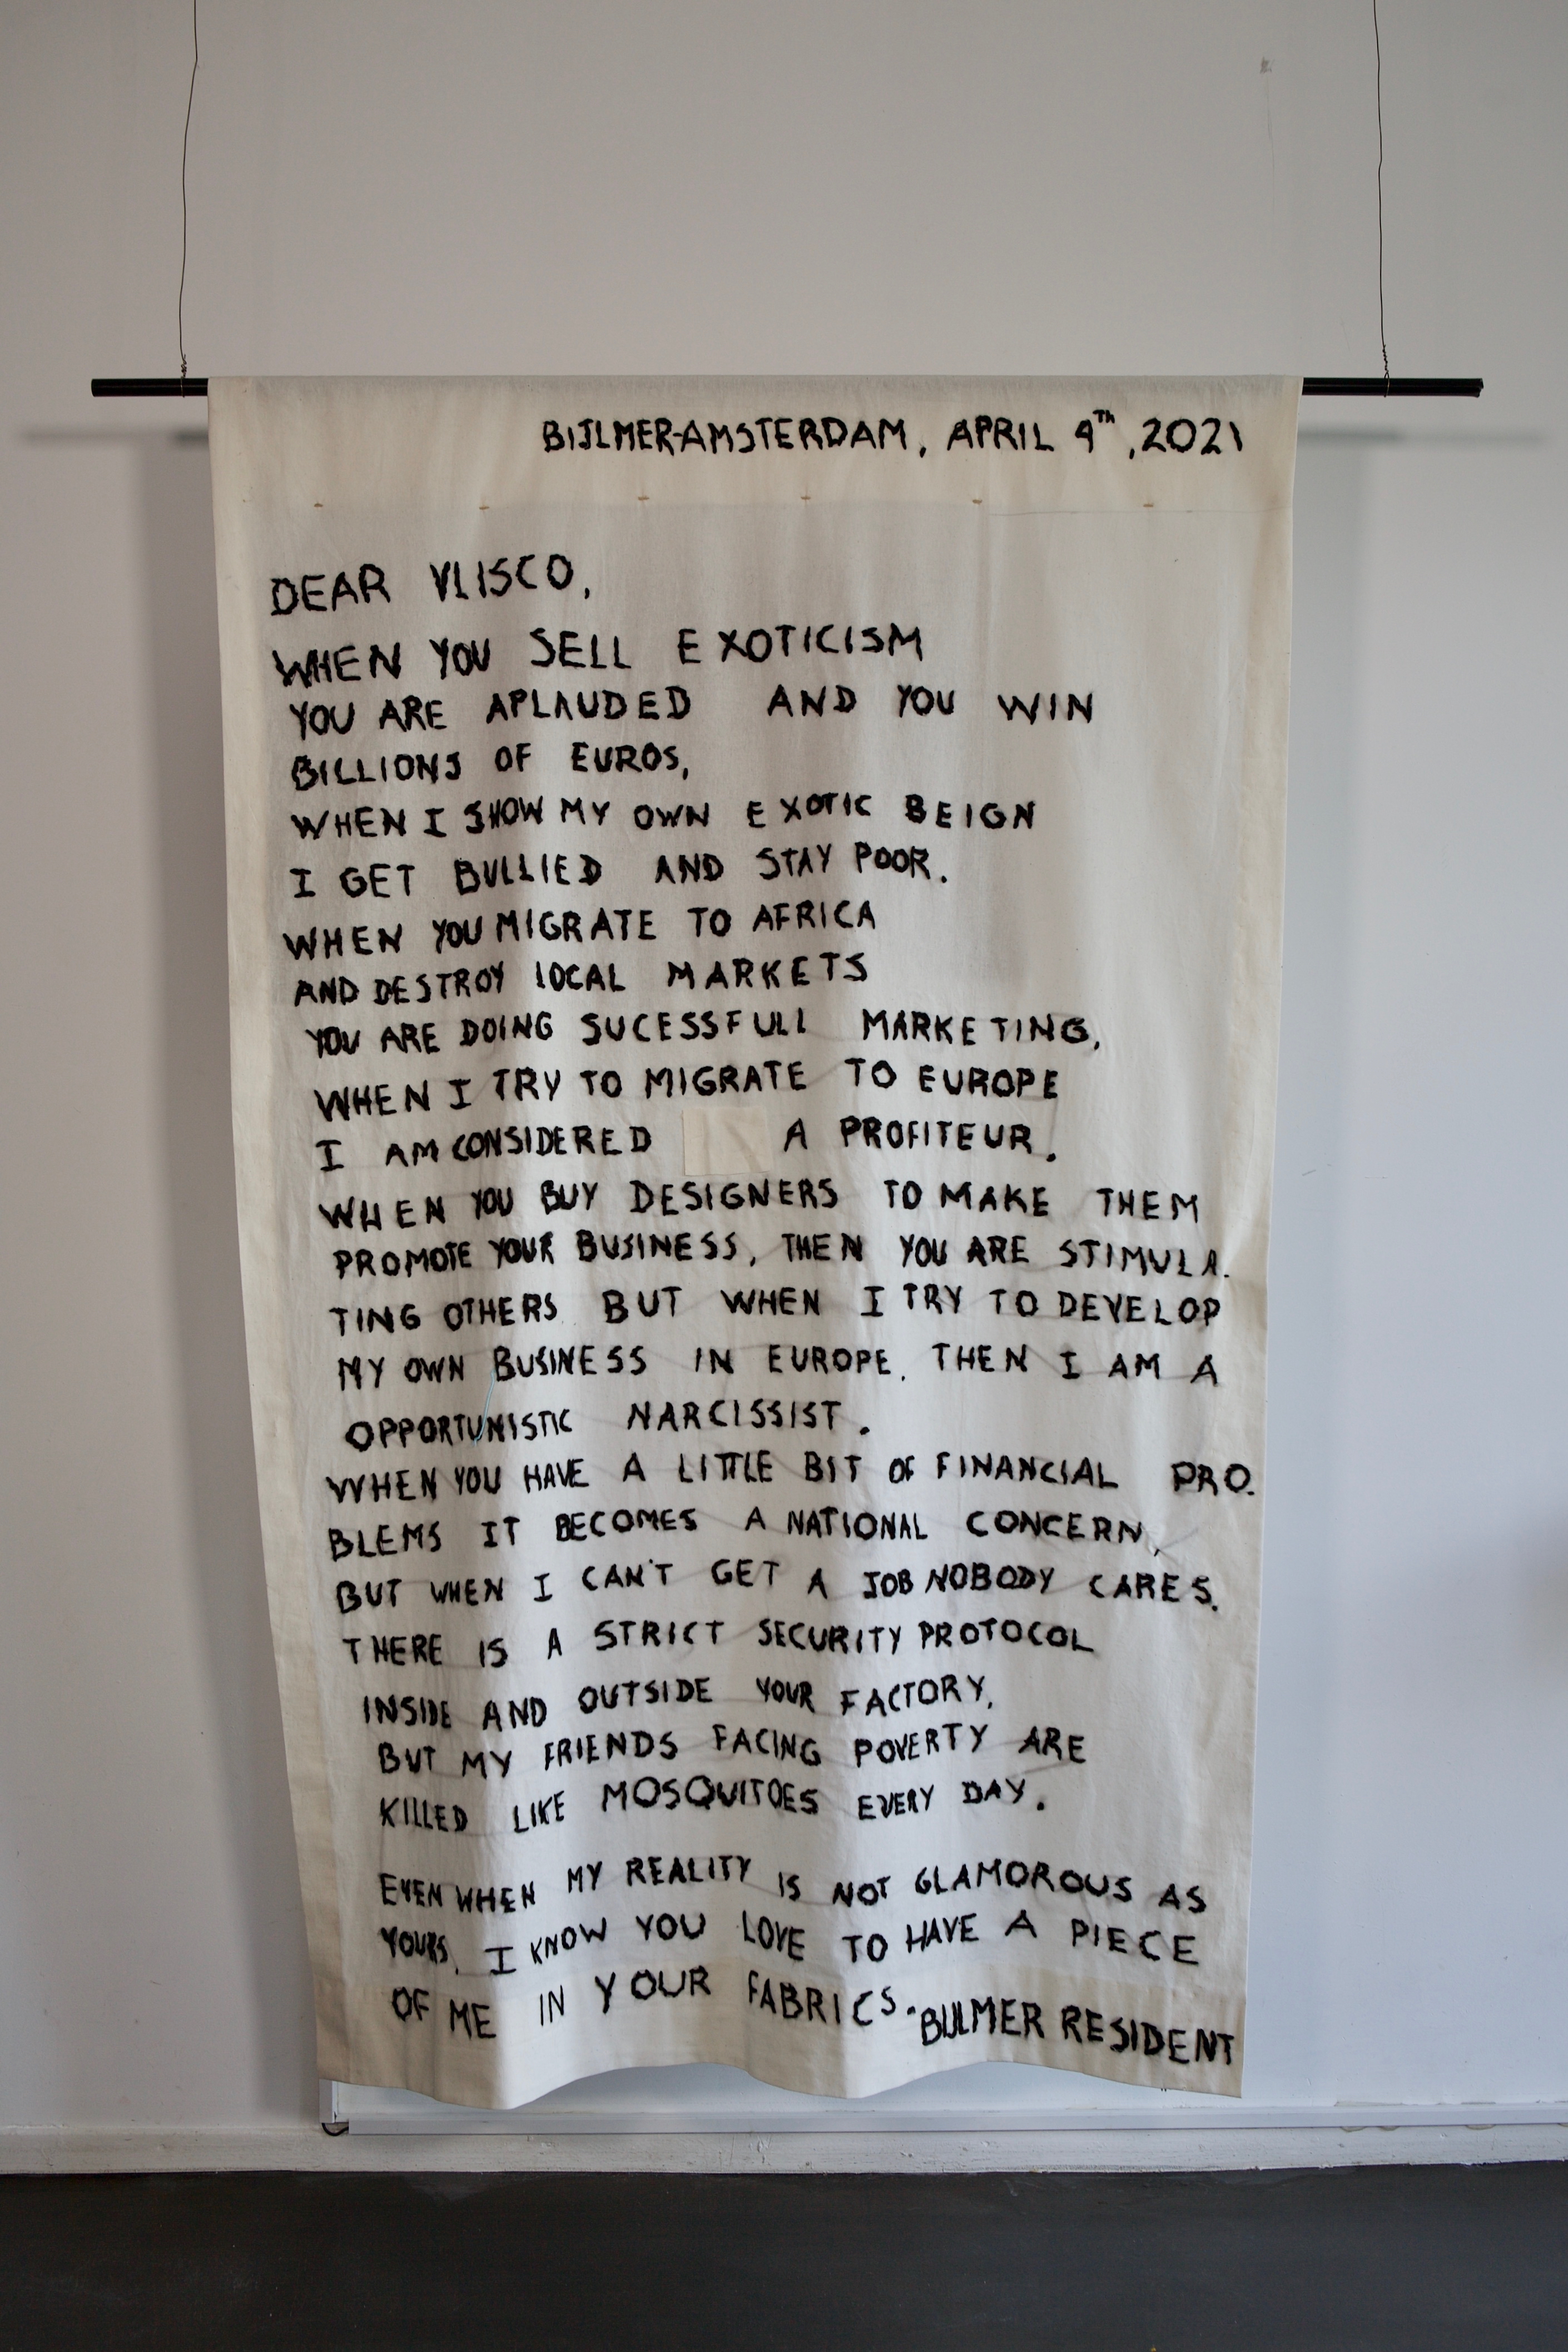 BIJLMER-AMSTERDAM, APRIL 9TH, 2021
DEAR VLISCO,
WHEN YOU SELL EXOTICISM
YOU ARE APLAUDED AND YOU WIN
BILLIONS OF EUROS,
WHEN I SHOW MY OWN EXOTIC BEIGN
I GET BULLIED AND STAY POOR.
WHEN YOU MIGRATE TO AFRICA
AND DESTROY LOCAL MARKETS
YOU ARE DOING SUCESSFULL MARKETING,
WHEN I TRY TO MIGRATE TO EUROPE
I AM CONSIDERED A PROFITEUR.
WHEN YOU BUY DESIGNERS TO MAKE THEM
PROMOTE YOUR BUSINESS, THEN YOU ARE STIMULA.
TING OTHERS BUT WHEN I TRY TO DEVELOP
MY OWN BUSINESS IN EUROPE. THEN I AM A
OPPORTUNISTIC NARCISSIST.
WHEN YOU HAVE A LITTLE BIT OF FINANCIAL PRO.
BLEMS IT BECOMES A NATIONAL CONCERN,
BUT WHEN I CAN'T GET A JOB NOBODY CARES.
THERE IS A STRICT SECURITY PROTOCOL
INSIDE AND OUTSIDE YOUR FACTORY,
BUT MY FRIENDS FACING POVERTY ARE
KILLED LIKE MOSQUITOES EVERY DAY.
EVEN WHEN MY REALITY IS NOT GLAMOROUS AS
YOURS, I KNOW YOU LOVE TO HAVE A PIECE
OF ME IN YOUR FABRICS.
BIJLMER RESIDENT